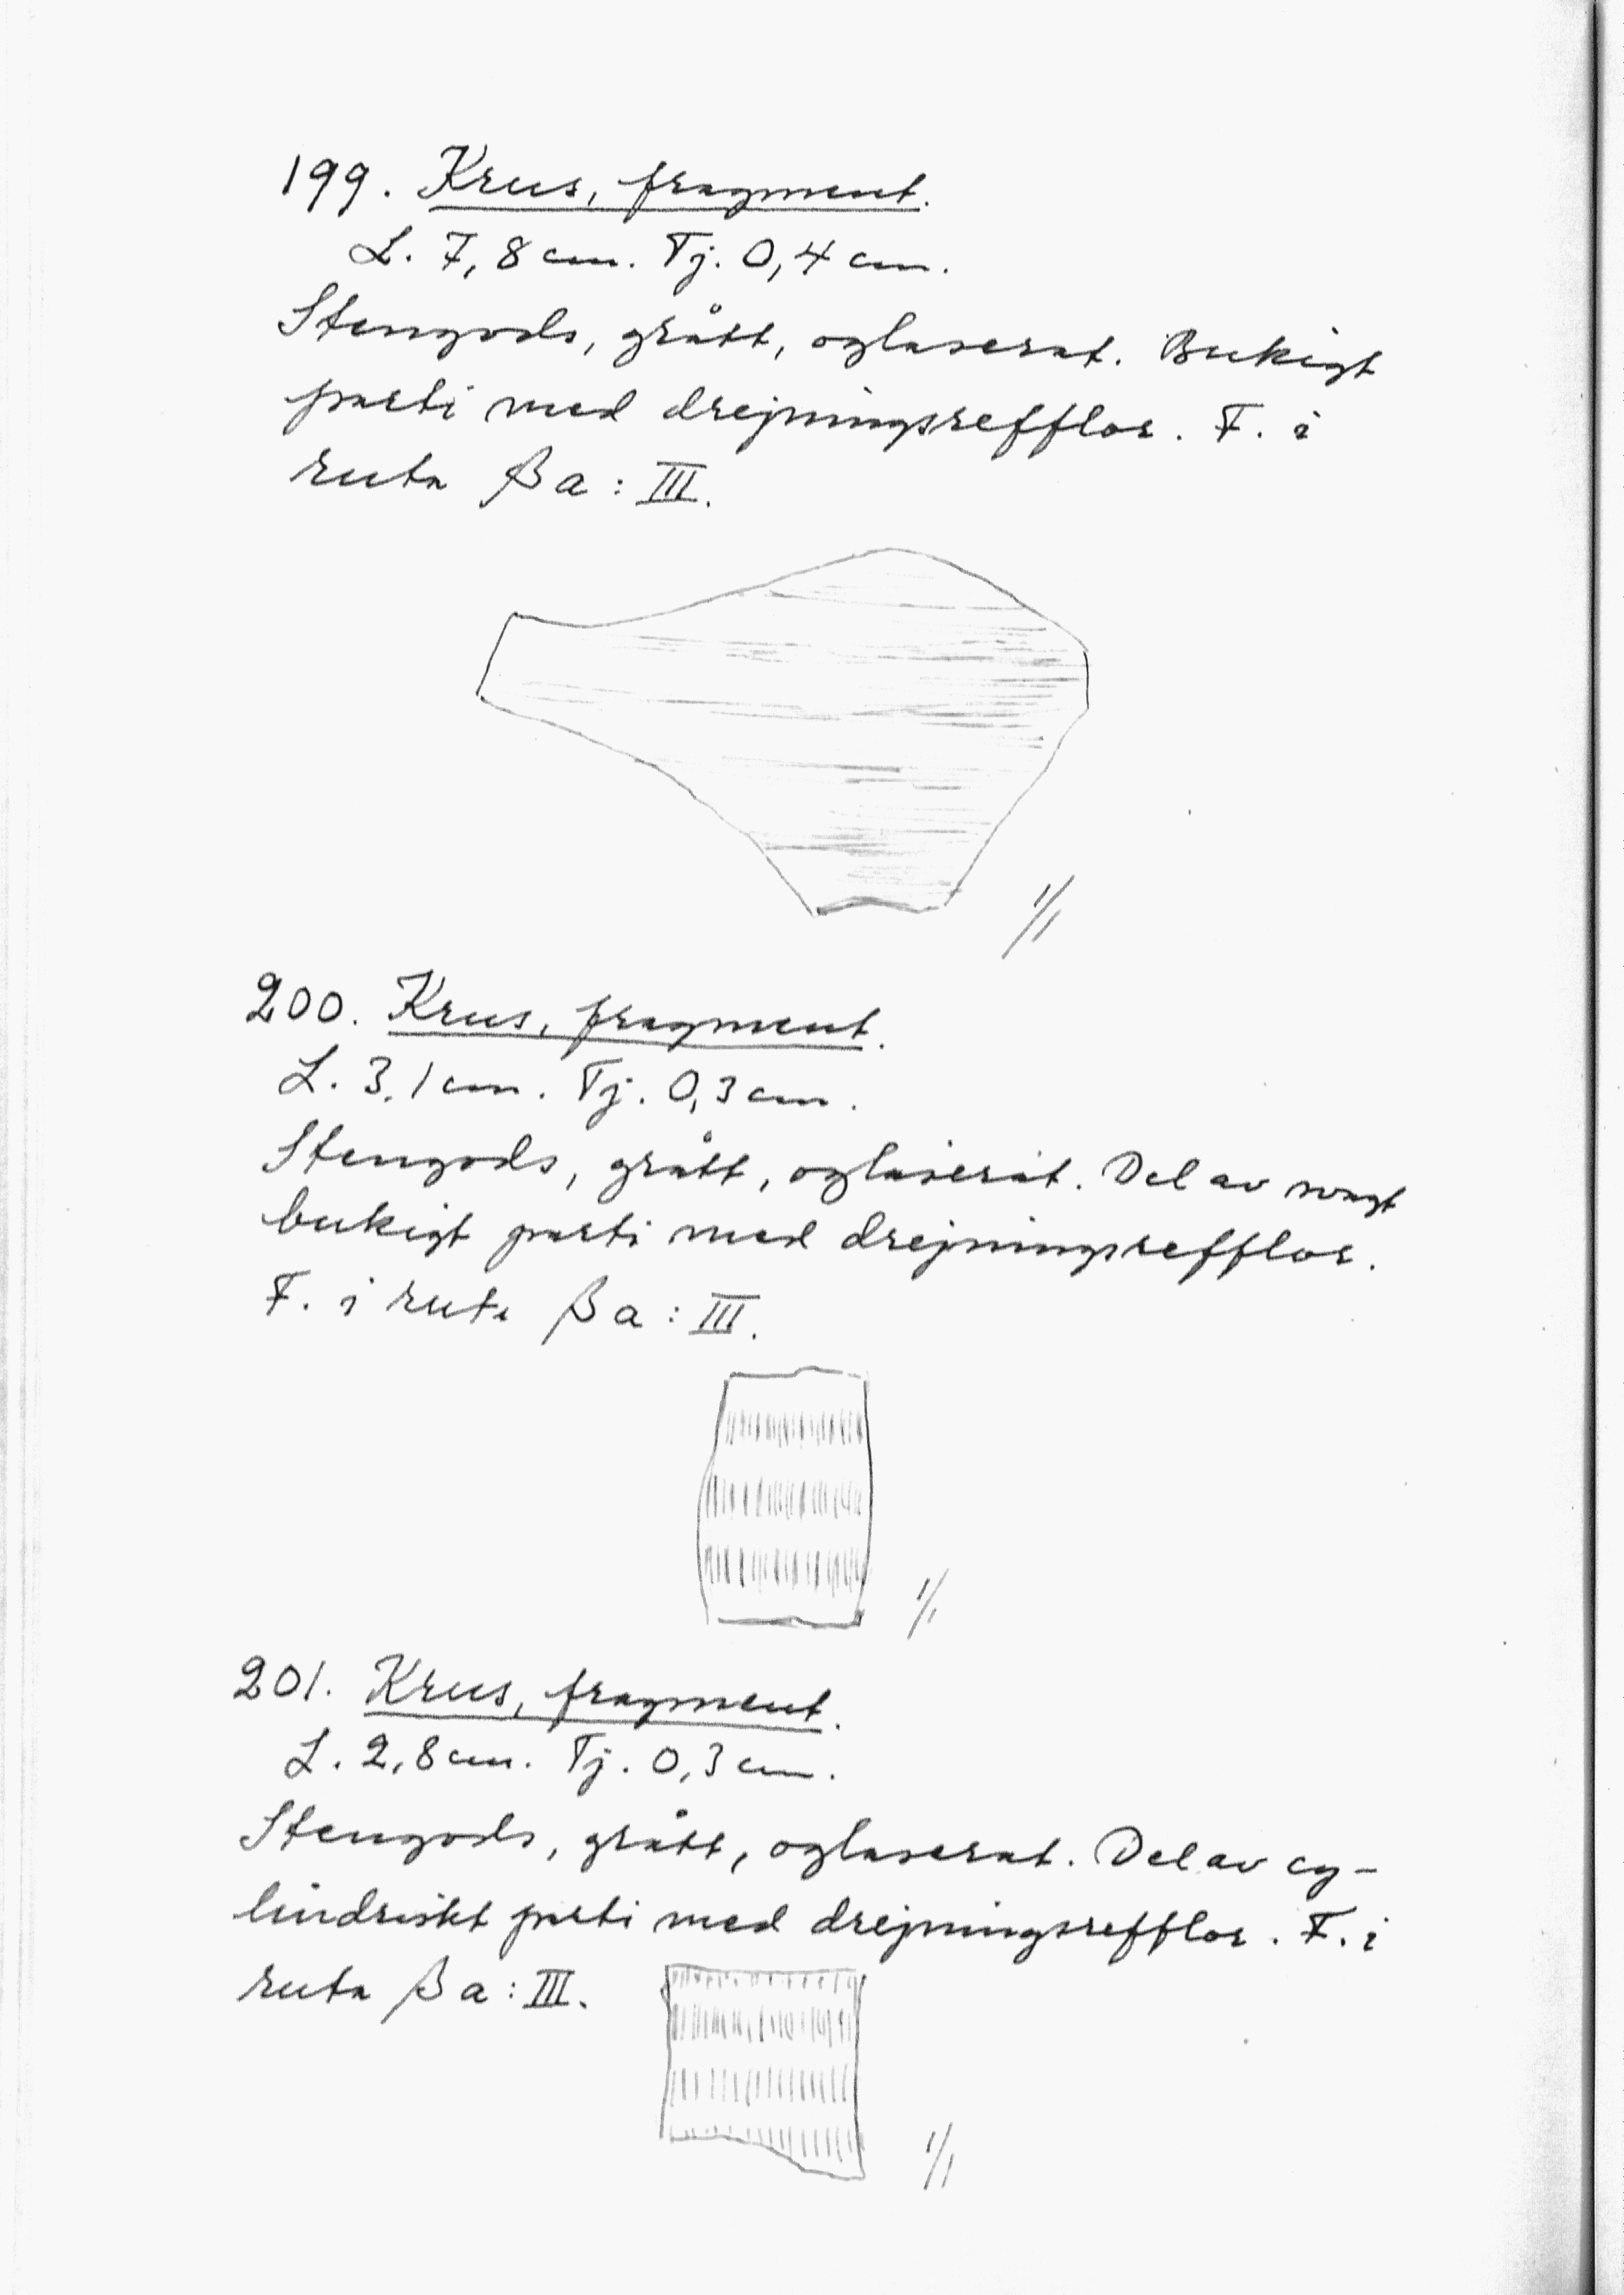 199. Krus, fragment.
L. 7,8 cm. Tj. 0,4 cm.
Stengods, grått, oglaserat. Bukigt
parti med drejningsrefflor. F. i
ruta βa: III.
1/1
200. Krus, fragment.
L. 3,1 cm. Tj. 0,3 cm.
Stengods, grått, oglaserat. Del av svagt
bukigt parti med drejningsrefflor.
F. i ruta βa: III.
1/1
201. Krus, fragment.
L. 2,8 cm. Tj. 0,3 cm.
Stengods, grått, oglaserat. Del av cy-
lindriskt parti med drejningsrefflor. F. i
ruta βa: III.
1/1